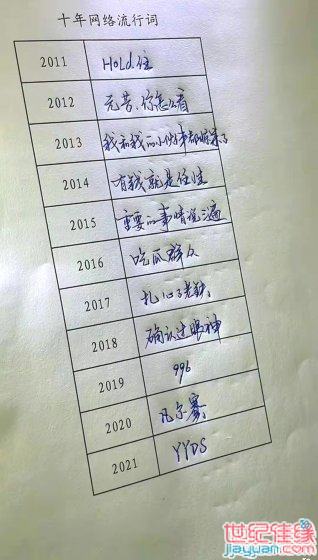 十年网络流行词
2011 Hold住
2012 元芳,你怎么看
2013 我和我的小伙伴都惊呆了
2014 有钱就是任性
2015 重要的事情说三遍
2016 吃瓜群众
2017 扎心了老铁
2018 确认过眼神
2019 996
2020 凡尔赛
2021 YYDS
世纪佳缘
jiayuan.com